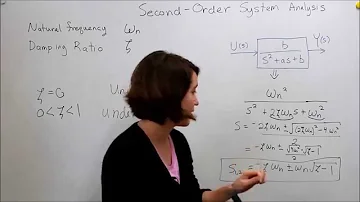 Second-Order System Analysis
Natural Frequency ωn
Damping Ratio ζ
U(s) b / s² + as + b Y(s)
ζ = 0 Un
0 < ζ < 1 unde
ωn²
s² + 2ζωn s + ωn²
s = -2ζωn ± √(2ζωn)² - 4ωn²
2
= -ζωn ± √ζ - 1
2
S1,2 = -ζωn ± ωn√ζ - 1